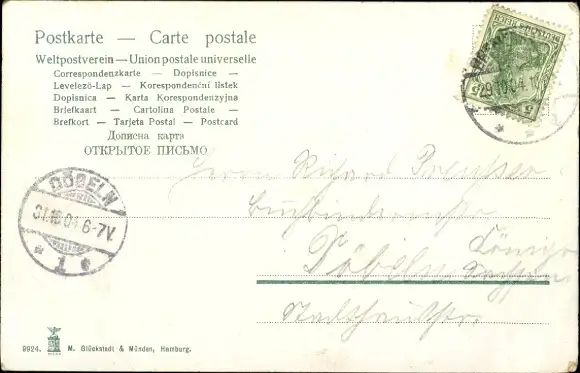 Postkarte — Carte postale
Weltpostverein — Union postale universelle
Correspondenzkarte — Dopisnice —
Levelező-Lap — Korespondenční listek
Dopisnica — Karta Korespondenzyjna
Briefkaart — Cartolina Postale —
Brefkort — Tarjeta Postal — Postcard
Дописна карта
ОТКРЫТОЕ ПИСЬМО
DEUTSCHES REICH
5 5
29.10.04
DÖBELN
6-7V.
* 1 *
Herrn Richard Preusser
Buchbindermstr.
Döbeln
Sachsen
9924.
M. Glückstadt & Münden, Hamburg.